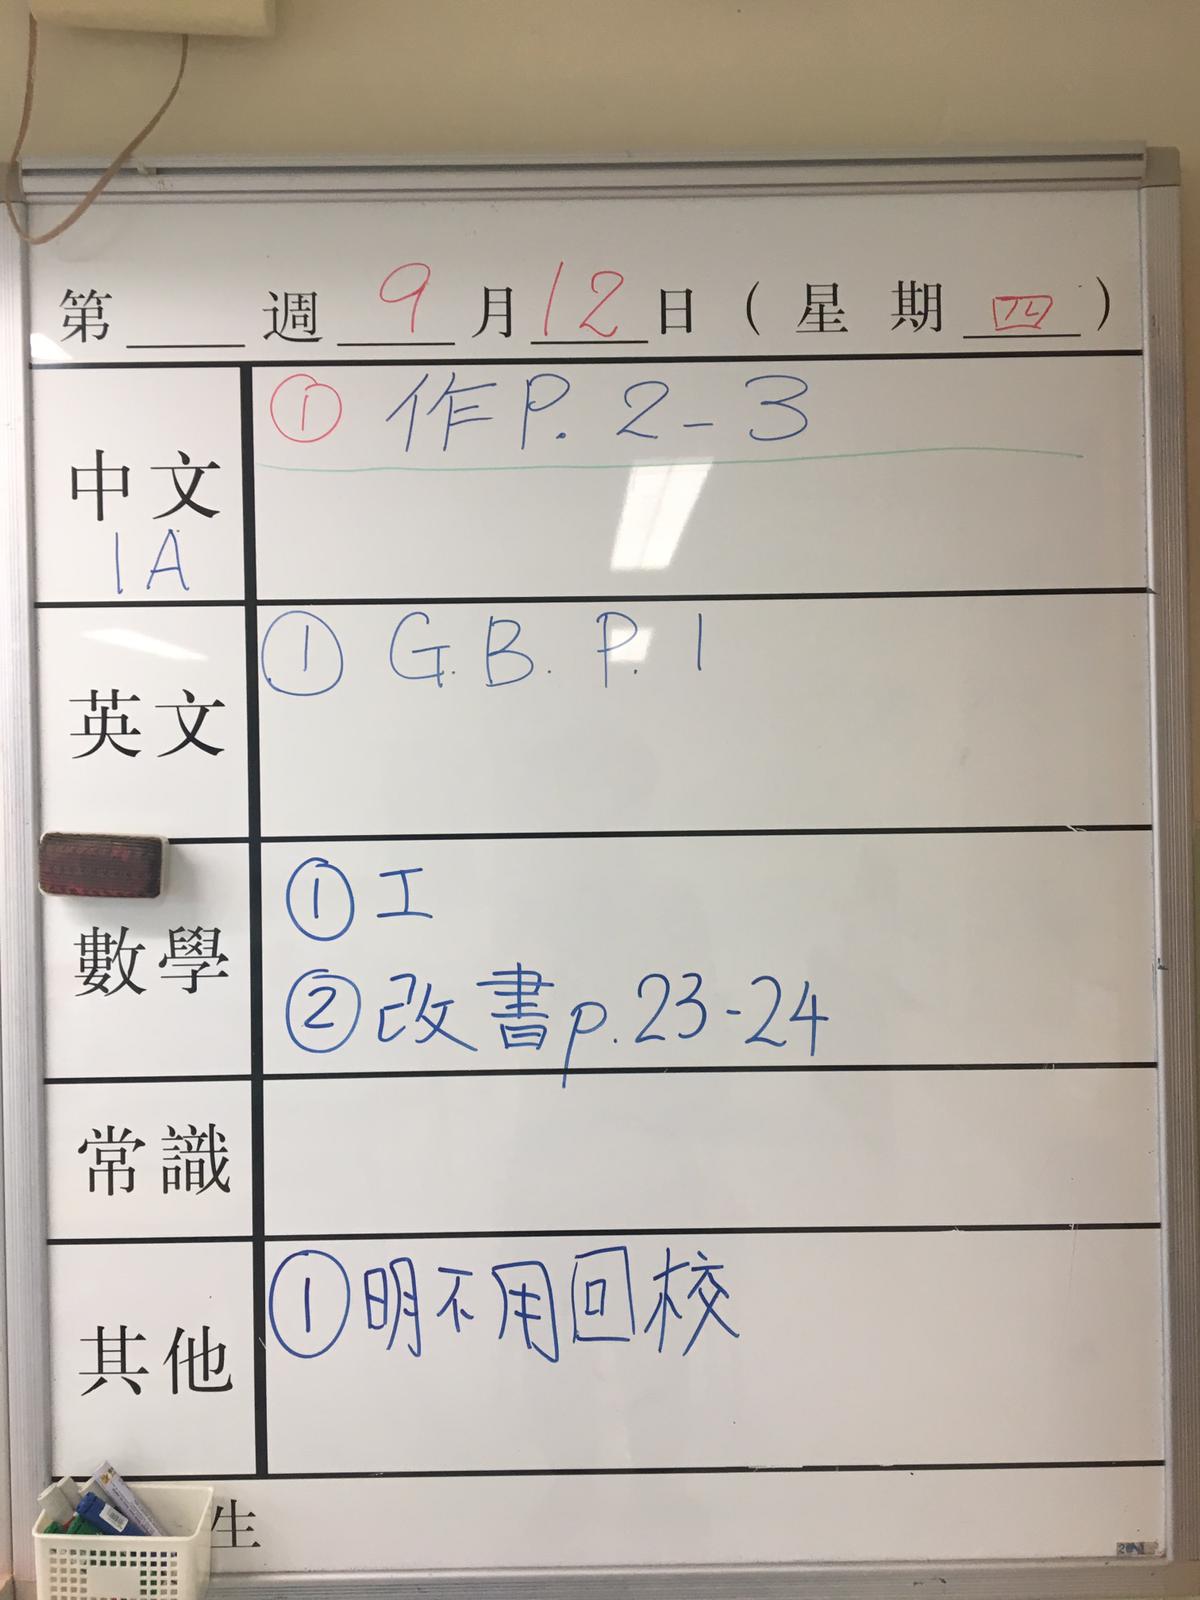 第 週 9 月 12 日 ( 星 期 四 )
中文
1A
① 作 P. 2-3
英文
① G.B. P. 1
數學
① 工
② 改書 p. 23-24
常識
其他
① 明不用回校
生